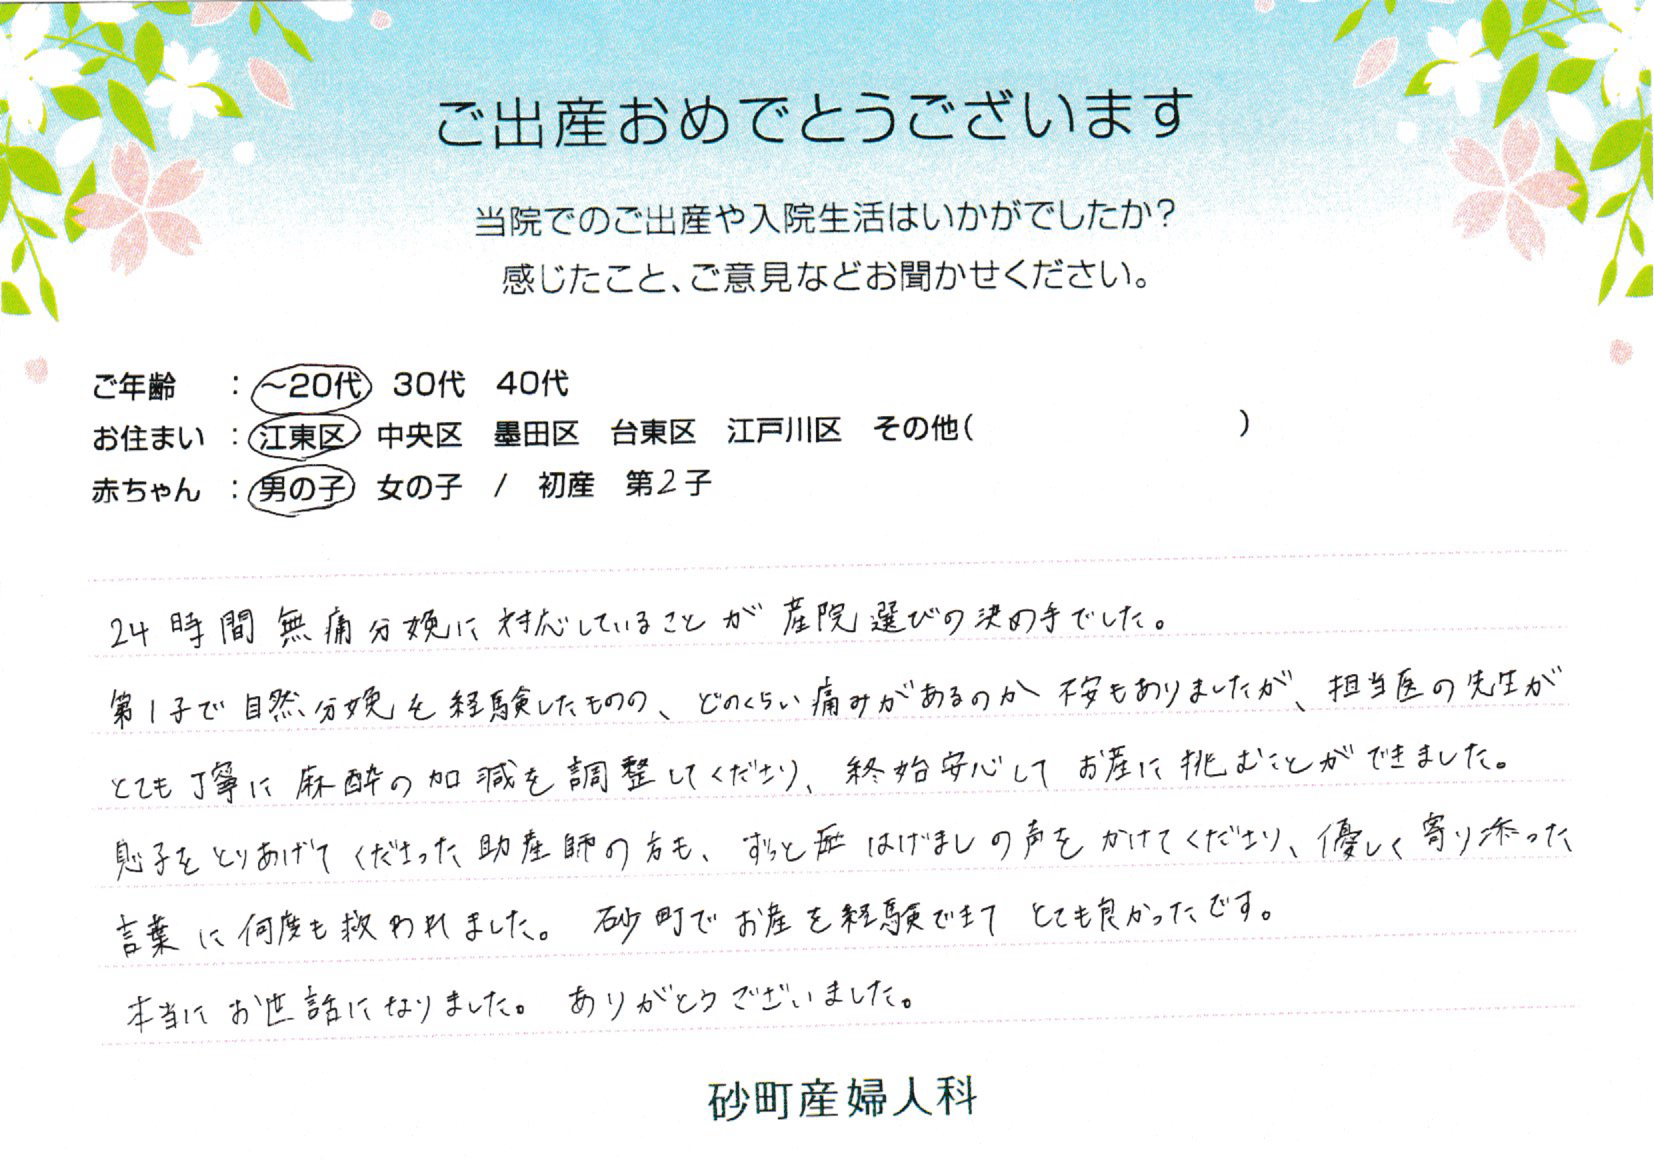 ご出産おめでとうございます
当院でのご出産や入院生活はいかがでしたか？
感じたこと、ご意見などお聞かせください。
ご年齢 : ～20代 30代 40代
お住まい : 江東区 中央区 墨田区 台東区 江戸川区 その他( )
赤ちゃん : 男の子 女の子 / 初産 第2子
24時間無痛分娩に対応していることが産院選びの決め手でした。
第1子で自然分娩を経験したものの、どのくらい痛みがあるのか不安もありましたが、担当医の先生が
とても丁寧に麻酔の加減を調整してくださり、終始安心してお産に挑むことができました。
息子をとりあげてくださった助産師の方も、ずっとはげましの声をかけてくださり、優しく寄り添った
言葉に何度も救われました。 砂町でお産を経験できてとても良かったです。
本当にお世話になりました。 ありがとうございました。
砂町産婦人科